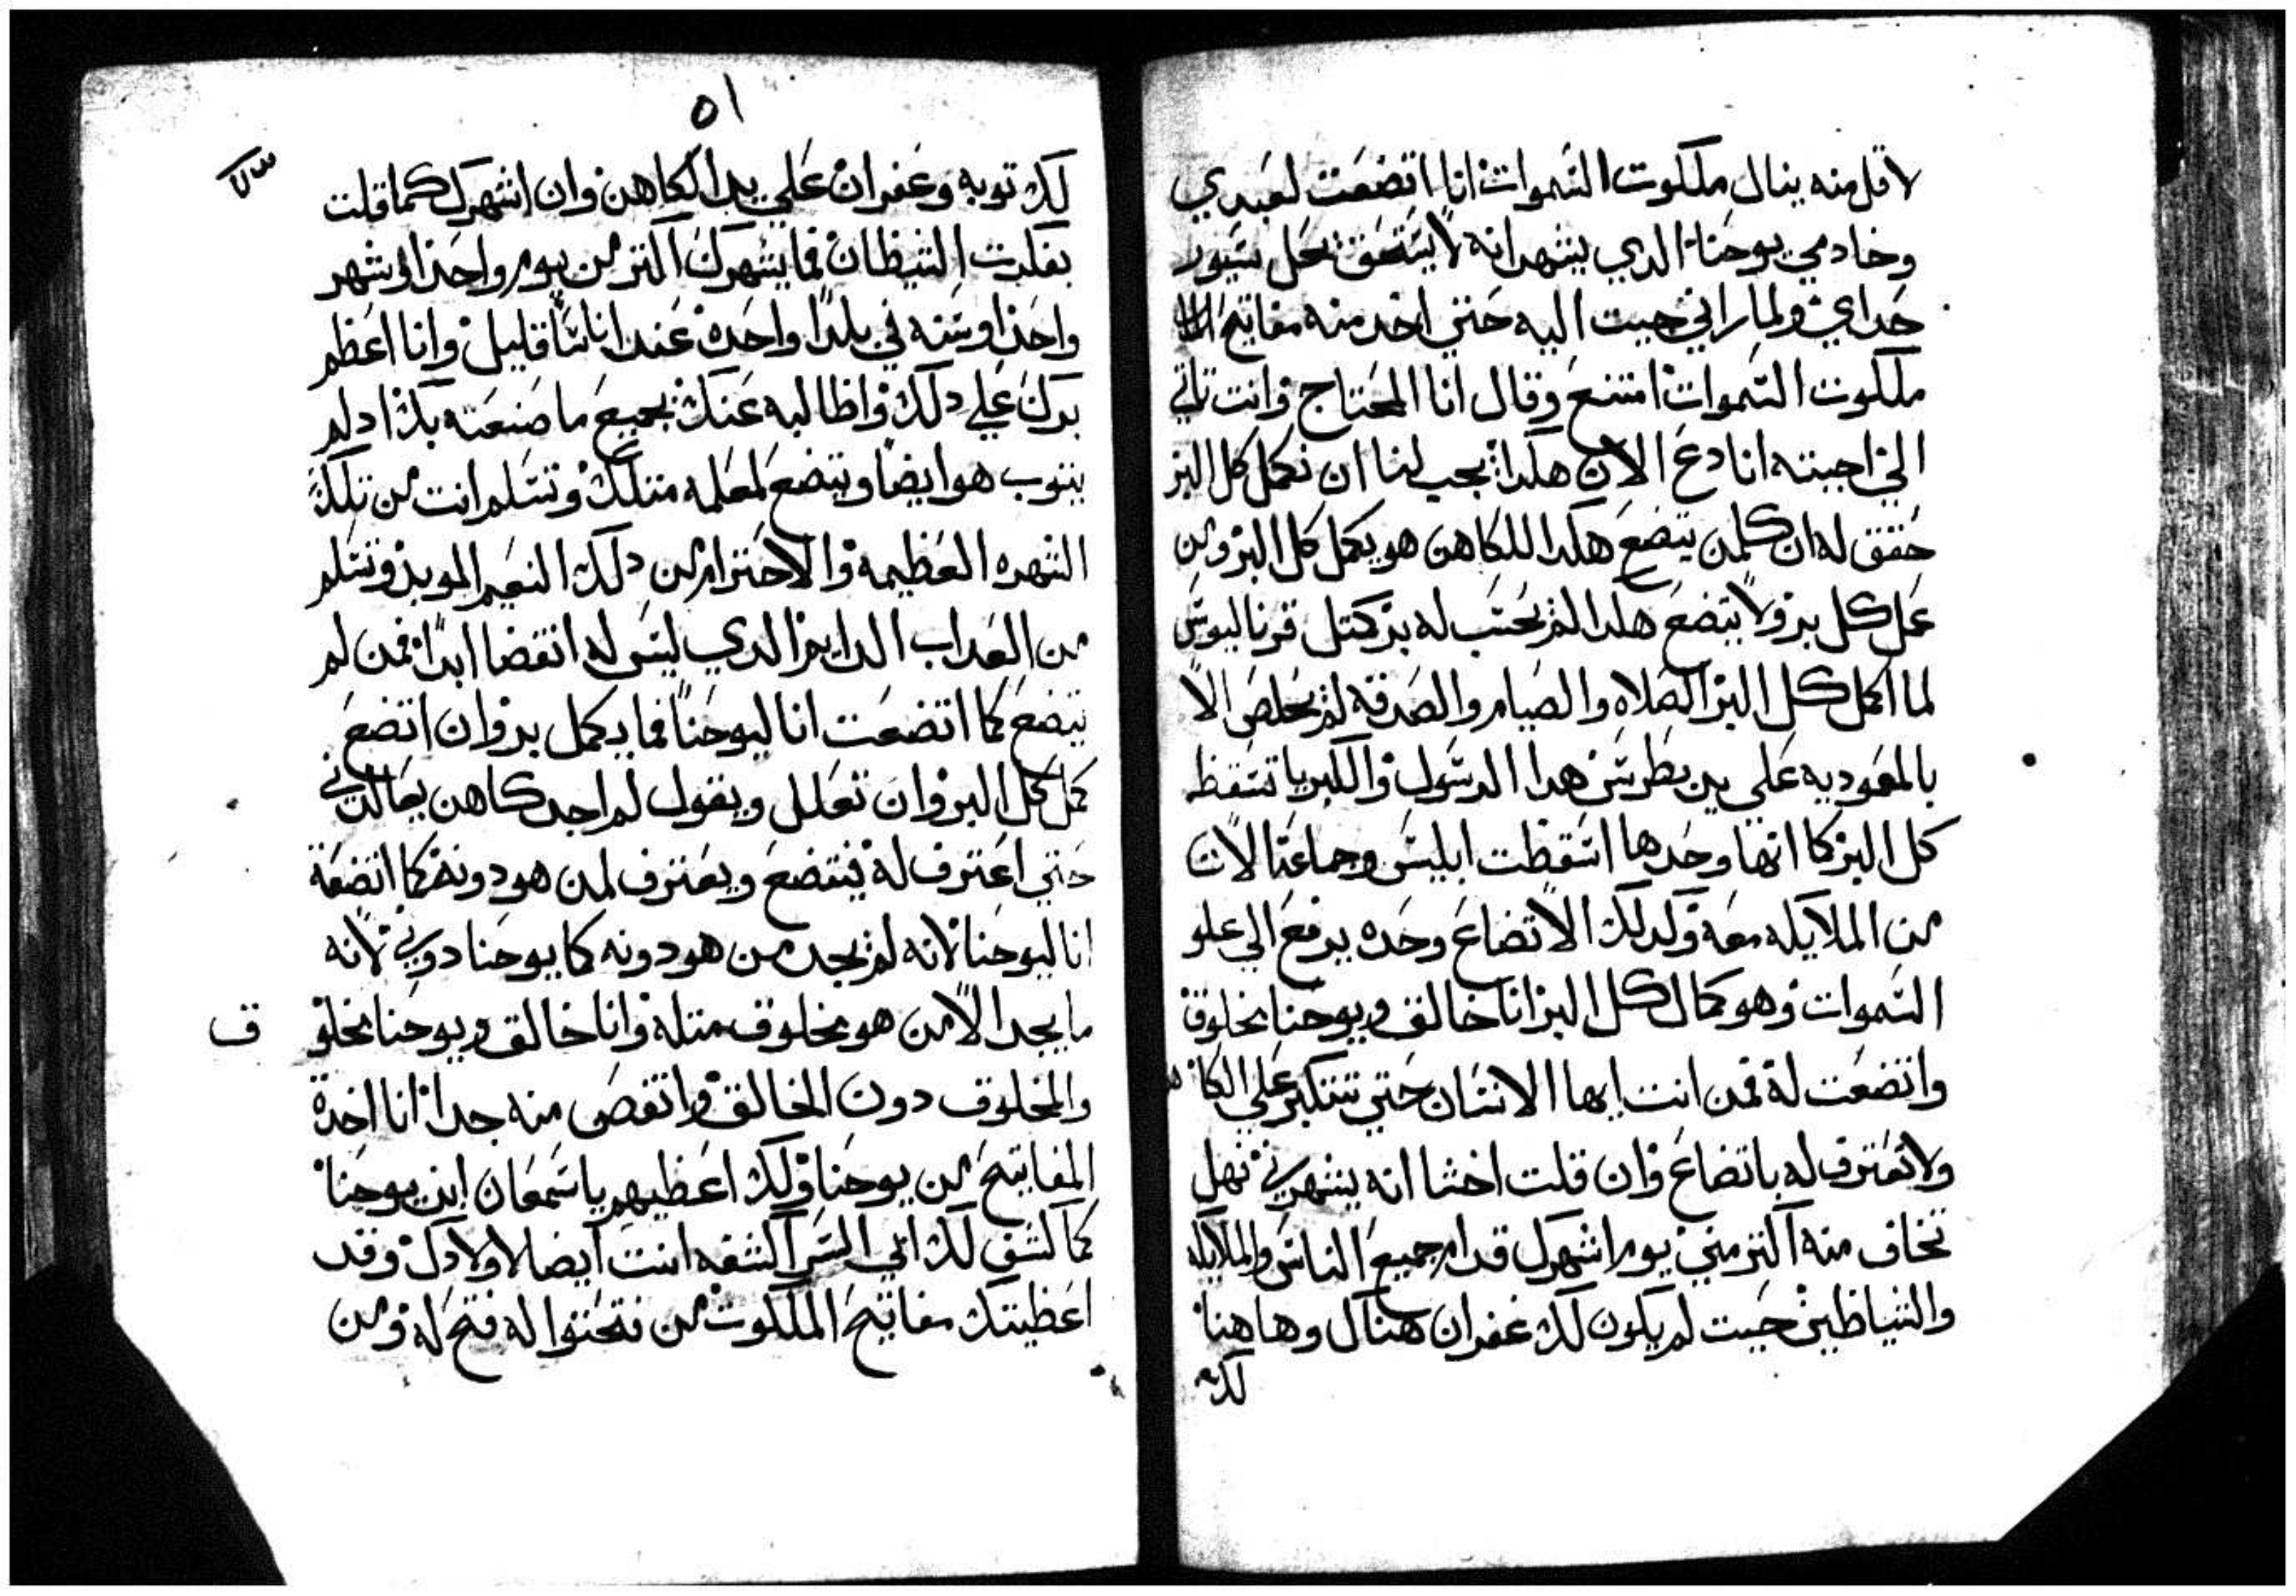 لاقل منه ينال ملكوت السموات انا اتضعت لعبدي
وخادمي يوحنا الدي يشهد انه لا يستحق يحل سيور
حداي ولما راني جيت اليه حتي اخد منه مفاتيح
ملكوت السموات امتنع وقال انا المحتاج وانت تاتي
الي اجبته انا دع الان هكدا يجب لنا ان نكمل كل البر
حقق له ان كلمن يتضع هكدا للكاهن هو يكمل كل البر ومن
عمل كل بر ولا يتضع هكدا لم يحسب له بر كتل قرناليوس
لما اكمل كل البر الصلاه والصيام والصدقه لم يخلص الا
بالمعوديه علي يد بطرس هدا الرسول والكبريا تسقط
كل البر كما انها وحدها اسقطت ابليس وجماعتا لات
من الملايكه معه وكدلك الاتضاع وحده يرفع الي علو
السموات وهو كمال كل البر انا خالق ويوحنا مخلوق
واتضعت له فمن انت ايها الانسان حتي تتكبر علي الكا
ولا تعترف له باتضاع وان قلت اخشا انه يشهرني فهل
تخاف منه اكتر مني يوم اشهرك قدام جميع الناس والملايكه
والشياطين حيت لم يكون لك غفران هناك وهاهنا
لك
٥١
لك توبه وغفران علي يد الكاهن وان اشهرك كما قلت
بفكرت الشيطان فما يشهرك اكتر من يوم واحد او شهر
واحد او سنه في بلدا واحده عند اناسا قليل وانا اعظم
برك علي دلك واطالبه عنك بجميع ما صنعته بك ادلم
يتوب هو ايضا ويتضع لمعلمه متلك وتسلم انت من تلك
الشهره العظيمه والاحترام من دلك النعيم الموبد وتسلم
من العداب الدايم الدي ليس له انقضا ابدا فمن لم
يتضع كما اتضعت انا ليوحنا فما يكمل بر وان اتضع
كمل كل البر وان تعلل ويقول لم اجد كاهن يعالدني
حتي اعترف له فيتضع ويعترف لمن هو دونه كما اتضعة
انا ليوحنا لانه لم يجد من هو دونه كما يوحنا دوني لانه
ما يجد الا من هو مخلوق متله وانا خالق ويوحنا مخلو ق
والمخلوق دون الخالق وانقص منه جدا انا اخدة
المفاتيح من يوحنا ولك اعطيهم يا سمعان ابن يوحنا
كما كشف لك ابي السر اكشفه انت ايضا لاولادك وقد
اعطيتك مفاتيح الملكوت من فتحتوا له فتح له ومن